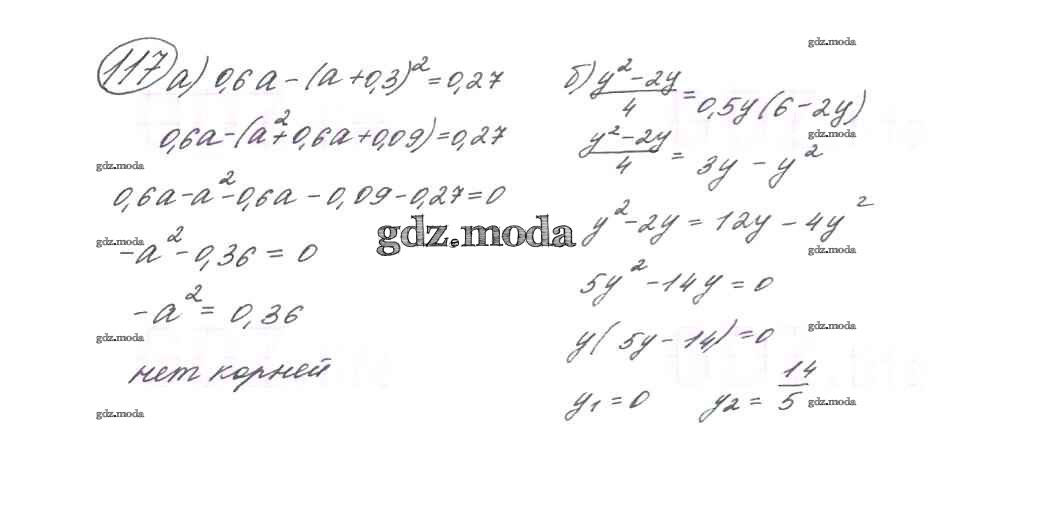 117 а) 0,6a - (a + 0,3)² = 0,27
0,6a - (a² + 0,6a + 0,09) = 0,27
0,6a - a² - 0,6a - 0,09 - 0,27 = 0
-a² - 0,36 = 0
-a² = 0,36
нет корней
б) (y² - 2y)/4 = 0,5y(6 - 2y)
(y² - 2y)/4 = 3y - y²
y² - 2y = 12y - 4y²
5y² - 14y = 0
y(5y - 14) = 0
y₁ = 0 y₂ = 14/5
gdz.moda
gdz.moda
gdz.moda
gdz.moda
gdz.moda
gdz.moda
gdz.moda
gdz.moda
gdz.moda
gdz.moda